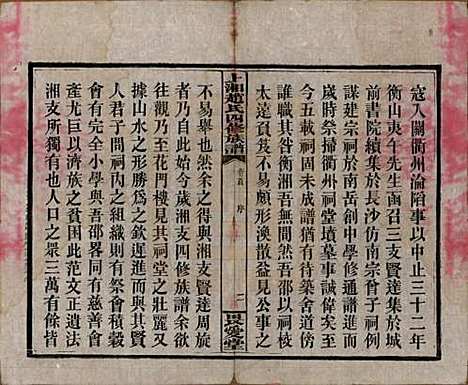 寇入關衢州淪陷事以中止三十二年
衡山夷午先生函召三支賢達集於城
前書院續集於長沙仿南宗曾子祠例
謀建宗祠於南岳創中學聯通譜進而
歲時祭掃衢州祠堂墳墓事誠偉矣而
今五載祠固未成譜猶有待築舍道傍
誰職其咎衡湘吾無間然吾邵以祠校
太遠資箕不易頗形渙散益見公事之
上湘趙氏四修族譜
卷首
序
二
不易舉也然余之得與湘支賢達周旋
者乃自此始今歲湘支四修族譜余欲
往觀乃至花門樓見其祠堂之壯麗又
據山水之形勝為之欽遲進而與其賢
人君子問祠內之組織則有祭會積穀
會有完全小學與吾邵畧同有慈善會
產尤巨以濟族之困此范文正遺意
湘支所獨有也人口之眾三萬有餘皆